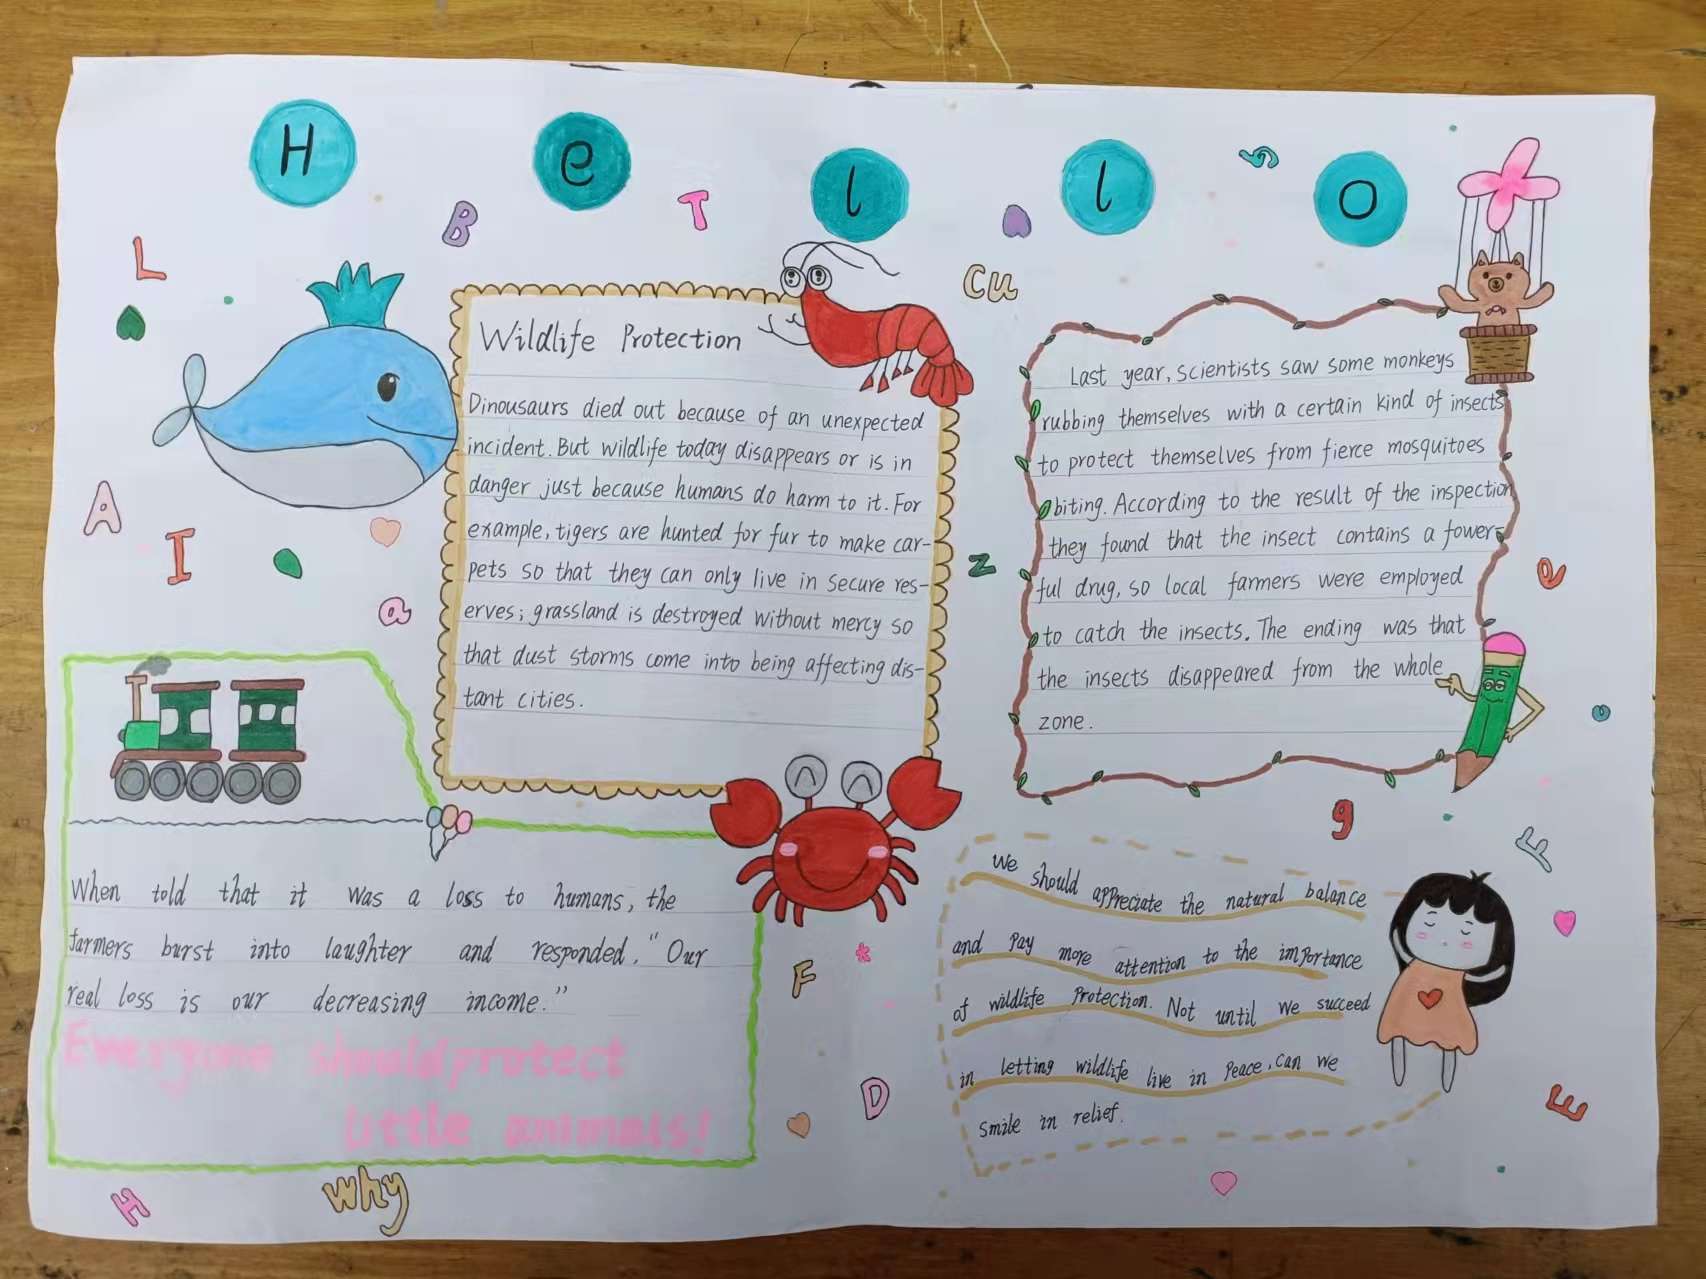 Hello
L
B
T
Cu
A
I
a
z
e
Wildlife Protection
Dinousaurs died out because of an unexpected
incident. But wildlife today disappears or is in
danger just because humans do harm to it. For
example, tigers are hunted for fur to make car-
pets so that they can only live in secure res-
erves; grassland is destroyed without mercy so
that dust storms come into being affecting dis-
tant cities.
Last year, scientists saw some monkeys
rubbing themselves with a certain kind of insects
to protect themselves from fierce mosquitoes
biting. According to the result of the inspection
they found that the insect contains a fower-
ful drug, so local farmers were employed
to catch the insects. The ending was that
the insects disappeared from the whole
zone.
When told that it was a loss to humans, the
farmers burst into laughter and responded, "Our
real loss is our decreasing income."
Everyone should protect
little animals!
We should appreciate the natural balance
and pay more attention to the importance
of wildlife protection. Not until we succeed
in letting wildlife live in peace, can we
smile in relief.
g
F
F
D
E
H
why